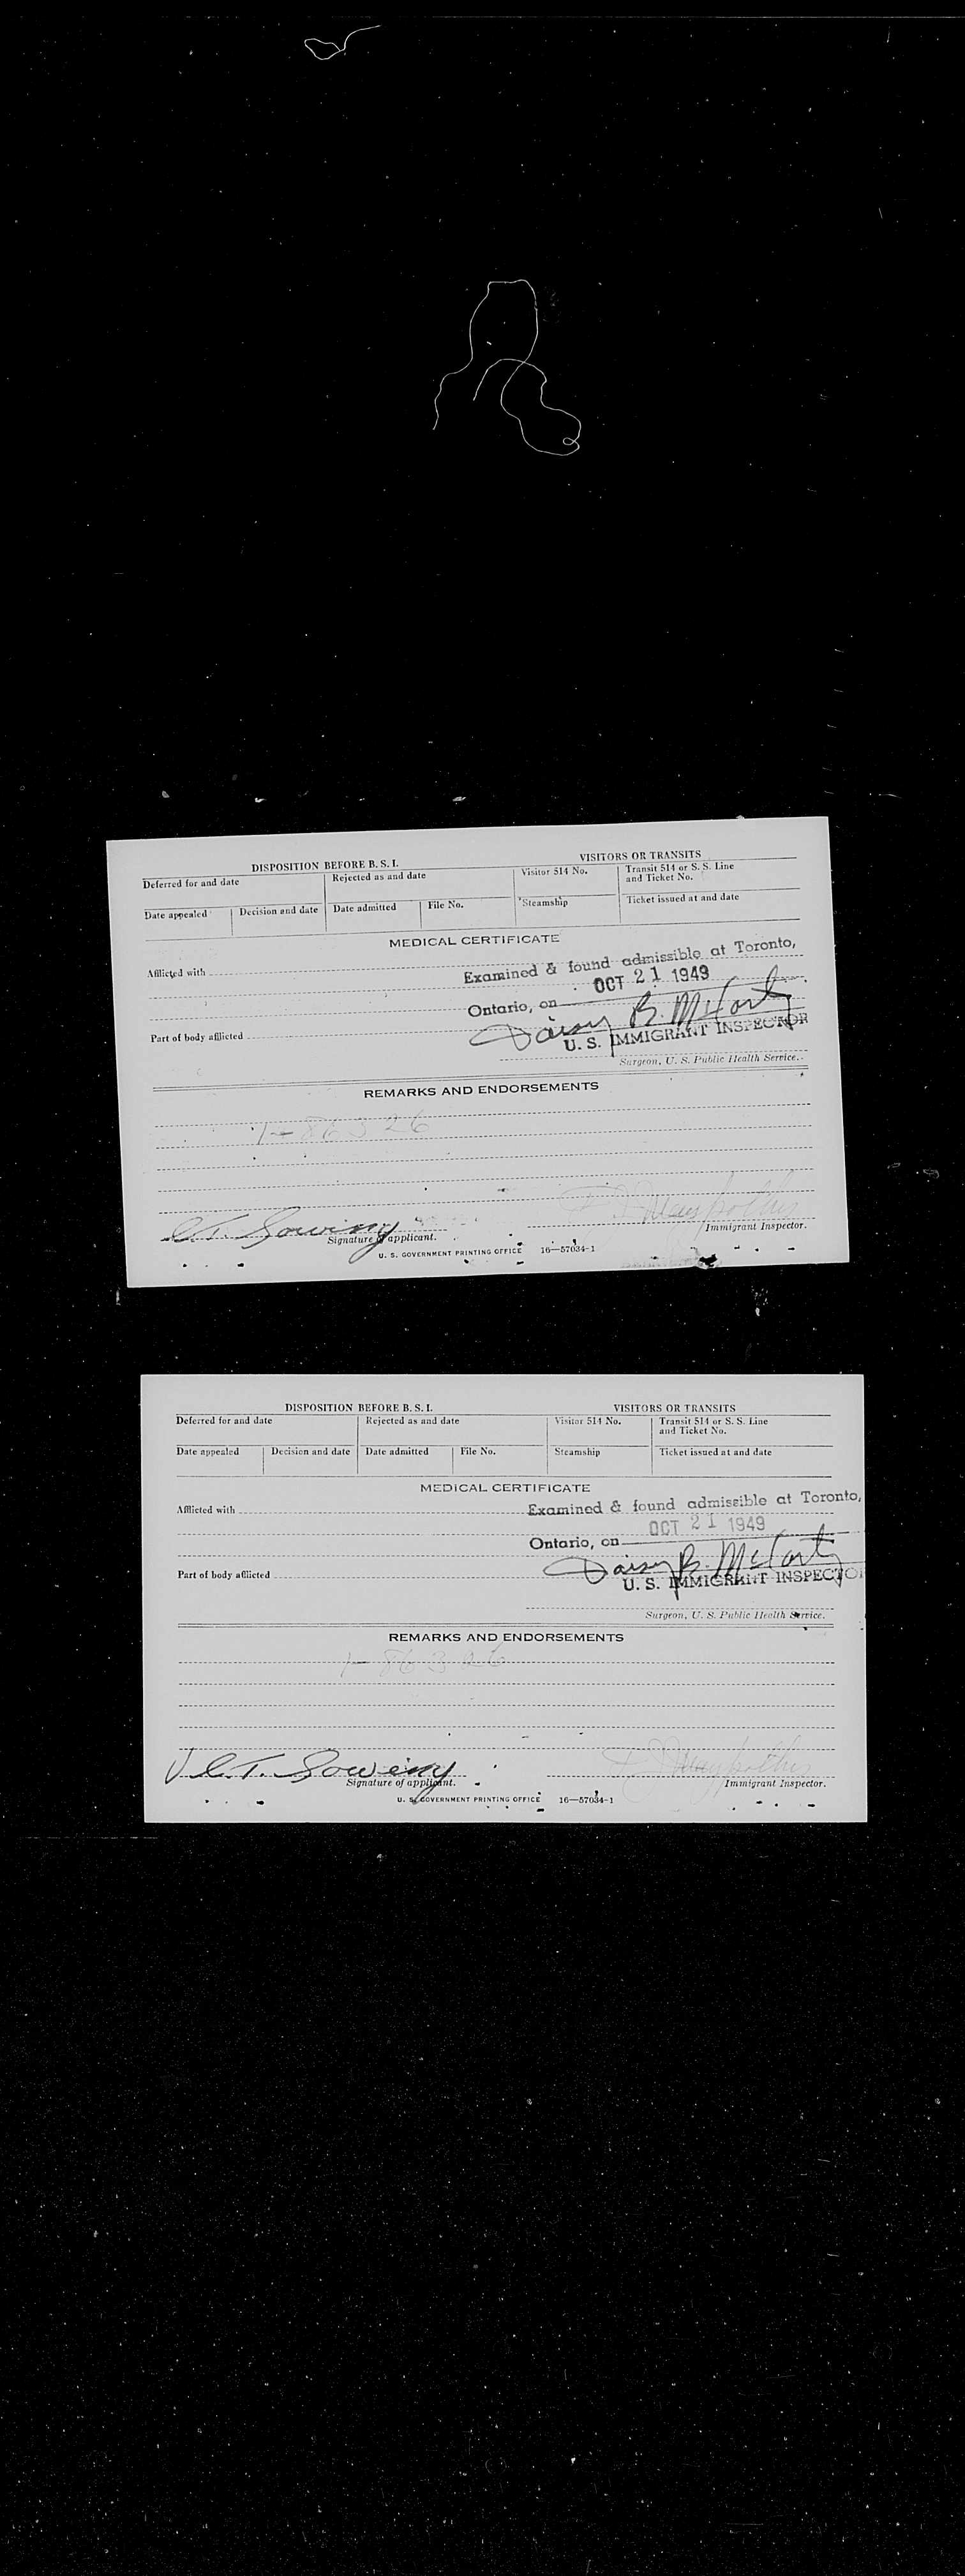 DISPOSITION BEFORE B. S. I.
VISITORS OR TRANSITS
Deferred for and date
Rejected as and date
Visitor 514 No.
Transit 514 or S. S. Line and Ticket No.
Date appealed
Decision and date
Date admitted
File No.
Steamship
Ticket issued at and date
MEDICAL CERTIFICATE
Afflicted with
Examined & found admissible at Toronto,
OCT 21 1949
Ontario, on
Daisy B. McCarty
Part of body afflicted
U. S. IMMIGRANT INSPECTOR
Surgeon, U. S. Public Health Service.
REMARKS AND ENDORSEMENTS
1-86326
Signature of applicant.
Immigrant Inspector.
U. S. GOVERNMENT PRINTING OFFICE 16—57034-1
DISPOSITION BEFORE B. S. I.
VISITORS OR TRANSITS
Deferred for and date
Rejected as and date
Visitor 514 No.
Transit 514 or S. S. Line and Ticket No.
Date appealed
Decision and date
Date admitted
File No.
Steamship
Ticket issued at and date
MEDICAL CERTIFICATE
Afflicted with
Examined & found admissible at Toronto,
OCT 21 1949
Ontario, on
Daisy B. McCarty
Part of body afflicted
U. S. IMMIGRANT INSPECTOR
Surgeon, U. S. Public Health Service.
REMARKS AND ENDORSEMENTS
1-86326
Signature of applicant.
Immigrant Inspector.
U. S. GOVERNMENT PRINTING OFFICE 16—57034-1